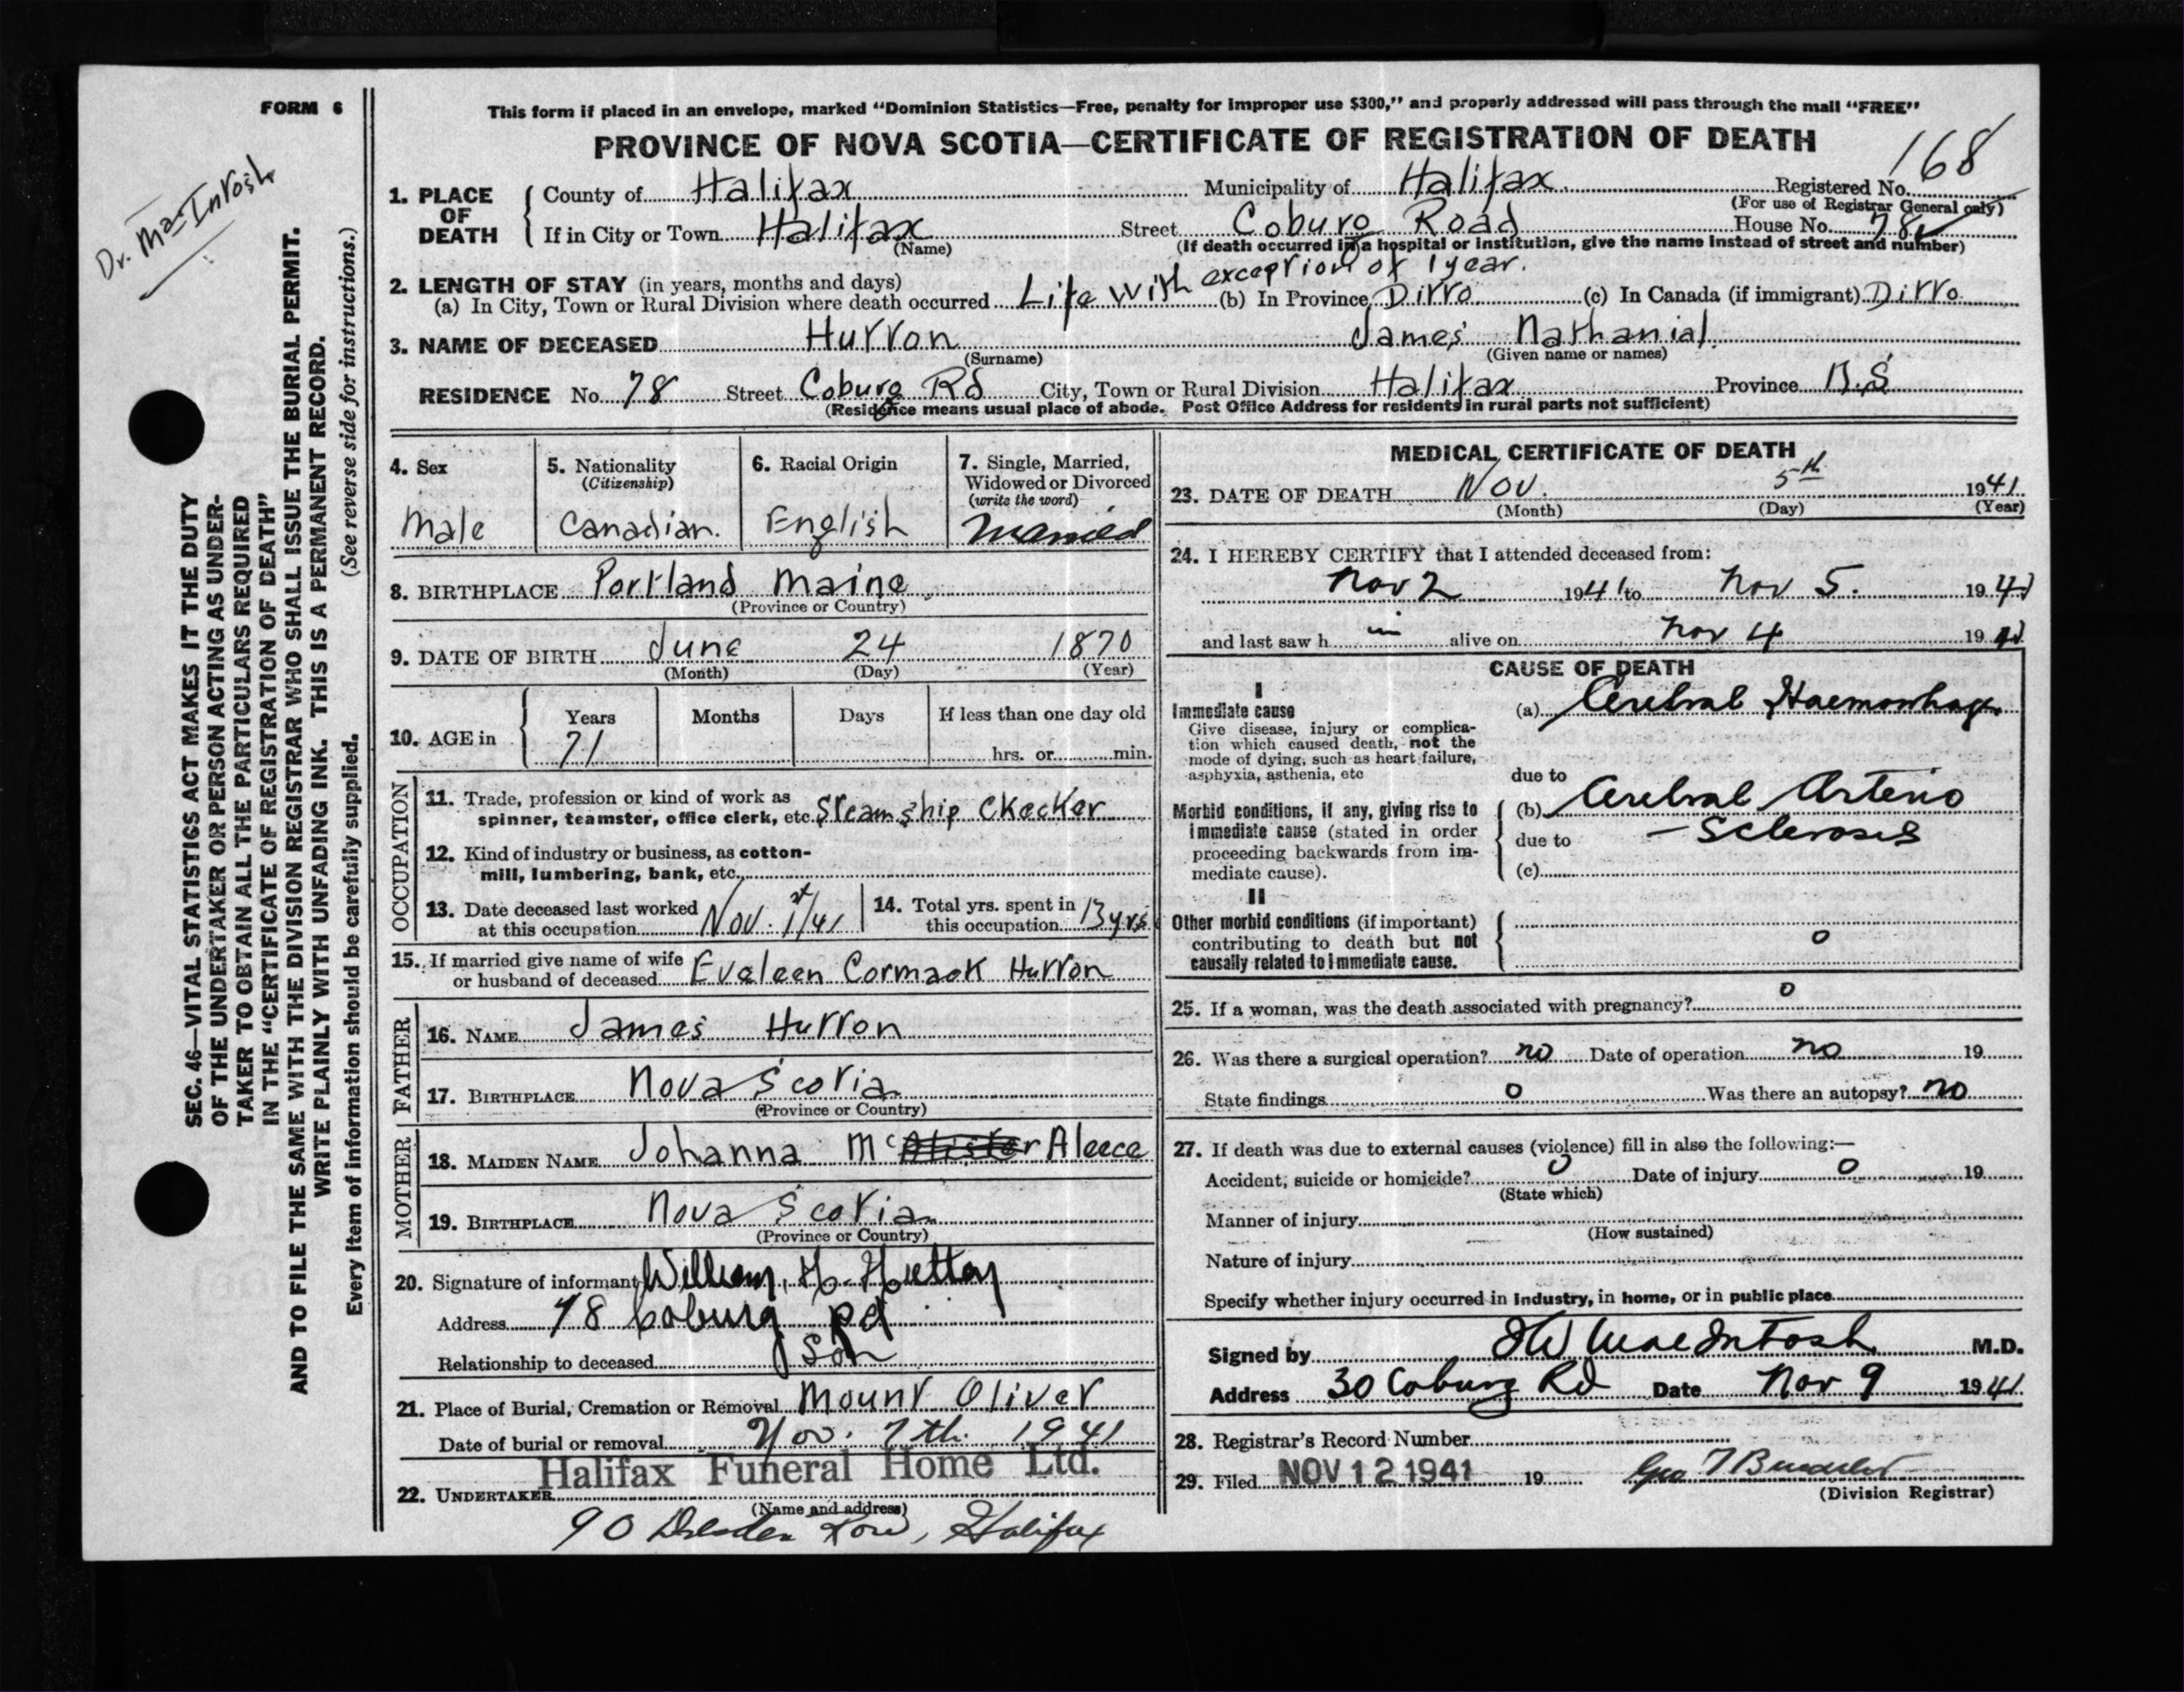 FORM 6
This form if placed in an envelope, marked "Dominion Statistics—Free, penalty for improper use $300," and properly addressed will pass through the mail "FREE"
PROVINCE OF NOVA SCOTIA—CERTIFICATE OF REGISTRATION OF DEATH
168
Dr. MacIntosh
1. PLACE OF DEATH
County of Halifax Municipality of Halifax Registered No.
(For use of Registrar General only)
If in City or Town Halifax Street Coburg Road House No. 78
(Name) (If death occurred in a hospital or institution, give the name instead of street and number)
2. LENGTH OF STAY (in years, months and days)
(a) In City, Town or Rural Division where death occurred Life with exception of 1 year. (b) In Province Ditto (c) In Canada (if immigrant) Ditto
3. NAME OF DECEASED Hutton James Nathanial
(Surname) (Given name or names)
RESIDENCE No. 78 Street Coburg Rd City, Town or Rural Division Halifax Province N.S
(Residence means usual place of abode. Post Office Address for residents in rural parts not sufficient)
4. Sex
Male
5. Nationality
(Citizenship)
Canadian.
6. Racial Origin
English
7. Single, Married,
Widowed or Divorced
(write the word)
Married
8. BIRTHPLACE Portland Maine
(Province or Country)
9. DATE OF BIRTH June 24 1870
(Month) (Day) (Year)
10. AGE in
Years Months Days If less than one day old
71 hrs. or min.
OCCUPATION
11. Trade, profession or kind of work as
spinner, teamster, office clerk, etc. Steamship Checker
12. Kind of industry or business, as cotton-
mill, lumbering, bank, etc.
13. Date deceased last worked
at this occupation Nov. 1st/41
14. Total yrs. spent in
this occupation 13 yrs
15. If married give name of wife
or husband of deceased Evaleen Cormack Hutton
FATHER
16. NAME James Hutton
17. BIRTHPLACE Nova Scotia
(Province or Country)
MOTHER
18. MAIDEN NAME Johanna Mc Aleece
19. BIRTHPLACE Nova Scotia
(Province or Country)
20. Signature of informant William H. Hutton
Address 78 Coburg Rd
Relationship to deceased Son
21. Place of Burial, Cremation or Removal Mount Olivet
Date of burial or removal Nov. 7th. 1941
Halifax Funeral Home Ltd.
22. UNDERTAKER
(Name and address)
90 Dresden Row, Halifax
MEDICAL CERTIFICATE OF DEATH
23. DATE OF DEATH Nov. 5th 1941
(Month) (Day) (Year)
24. I HEREBY CERTIFY that I attended deceased from:
Nov 2 1941 to Nov 5. 1941
and last saw h im alive on Nov 4 1941
CAUSE OF DEATH
I
Immediate cause
Give disease, injury or complica-
tion which caused death, not the
mode of dying, such as heart failure,
asphyxia, asthenia, etc
(a) Cerebral Haemorrhage
due to
Morbid conditions, if any, giving rise to
immediate cause (stated in order
proceeding backwards from im-
mediate cause).
(b) Cerebral Arterio
due to - Sclerosis
(c)
II
Other morbid conditions (if important)
contributing to death but not
causally related to immediate cause.
0
25. If a woman, was the death associated with pregnancy? 0
26. Was there a surgical operation? no Date of operation no 19
State findings 0 Was there an autopsy? no
27. If death was due to external causes (violence) fill in also the following:—
Accident, suicide or homicide? 0 Date of injury 0 19
(State which)
Manner of injury
(How sustained)
Nature of injury
Specify whether injury occurred in industry, in home, or in public place
Signed by MacIntosh M.D.
Address 30 Coburg Rd Date Nov 9 1941
28. Registrar's Record Number
29. Filed NOV 12 1941 19
(Division Registrar)
SEC. 46—VITAL STATISTICS ACT MAKES IT THE DUTY
OF THE UNDERTAKER OR PERSON ACTING AS UNDER-
TAKER TO OBTAIN ALL THE PARTICULARS REQUIRED
IN THE "CERTIFICATE OF REGISTRATION OF DEATH"
AND TO FILE THE SAME WITH THE DIVISION REGISTRAR WHO SHALL ISSUE THE BURIAL PERMIT.
WRITE PLAINLY WITH UNFADING INK. THIS IS A PERMANENT RECORD.
Every item of information should be carefully supplied. (See reverse side for instructions.)